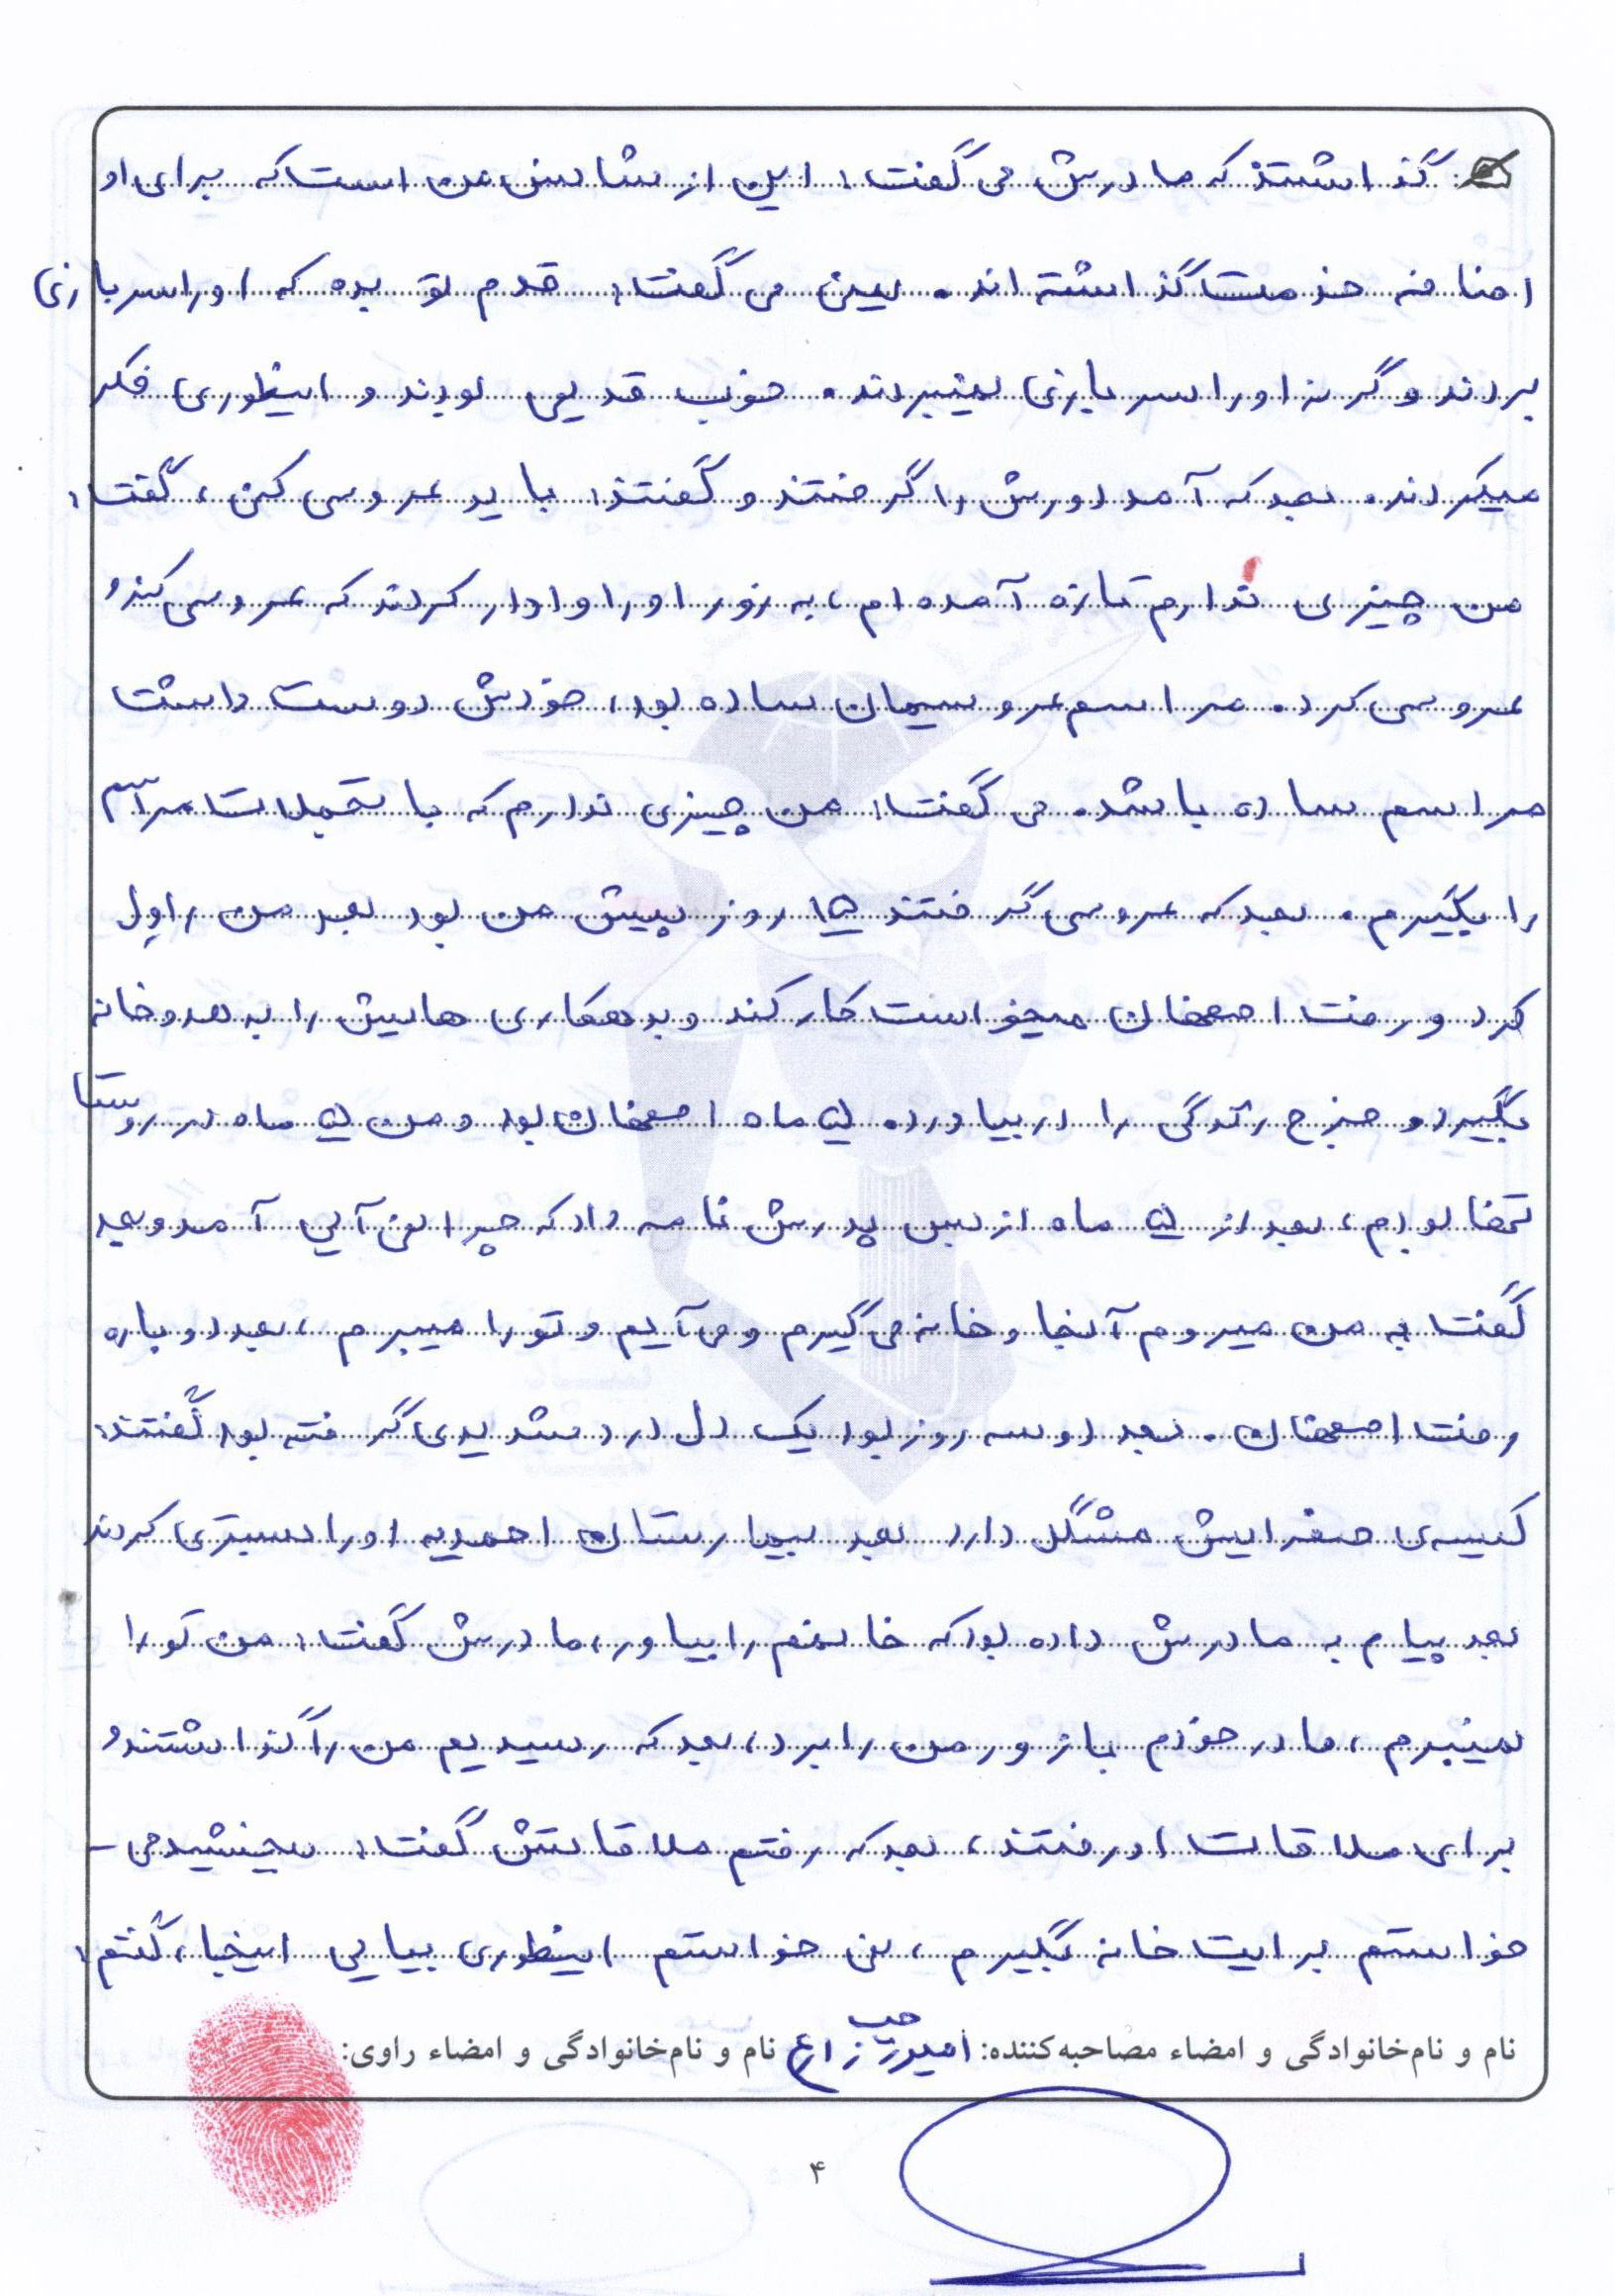 گذاشتند که مادرش می گفت: این از شانس من است که برای او
اضافه خدمت گذاشته اند. یعنی می گفت: قدم تو بده که او را سربازی
بردند وگرنه او را سربازی نمیبردند. خوب قدیمی بودند و اینطوری فکر
میکردند. بعد که آمد دورش را گرفتند و گفتند: باید عروسی کنی، گفت:
من چیزی ندارم تازه آمده ام، به زور او را وادار کردند که عروسی کند و
عروسی کرد. مراسم عروسیمان ساده بود، خودش دوست داشت
مراسم ساده باشد. می گفت: من چیزی ندارم که با تجملات مراسم
را بگیرم. بعد که عروسی گرفتند ۱۵ روز پیش من بود بعد من را ول
کرد و رفت اصفهان میخواست کار کند و بدهکاری هایش را بدهد و خانه
بگیرد و خرج زندگی را در بیاورد. ۵ ماه اصفهان بود و من ۵ ماه در روستا
تنها بودم، بعد از ۵ ماه از بس پدرش نامه داد که چرا نمی آیی آمد و بعد
گفت به من میروم آنجا و خانه می گیرم و می آیم و تو را میبرم، بعد دوباره
رفت اصفهان. بعد دو سه روز بود یک دل درد شدیدی گرفته بود گفتند:
کیسه ی صفرایش مشکل دارد بعد بیمارستان احمدیه او را بستری کردند
بعد پیام به مادرش داده بود که خانمم را بیاور، مادرش گفت: من تو را
نمیبرم، مادر خودم باز ور من را برد، بعد که رسیدیم من را گذاشتند و
برای ملاقات او رفتند، بعد که رفتم ملاقاتش گفت: ببخشید می-
خواستم برایت خانه بگیرم، نمی خواستم اینطوری بیایی اینجا، گفتم:
نام و نام‌خانوادگی و امضاء مصاحبه‌کننده: امیررجب زارع نام و نام‌خانوادگی و امضاء راوی:
۴